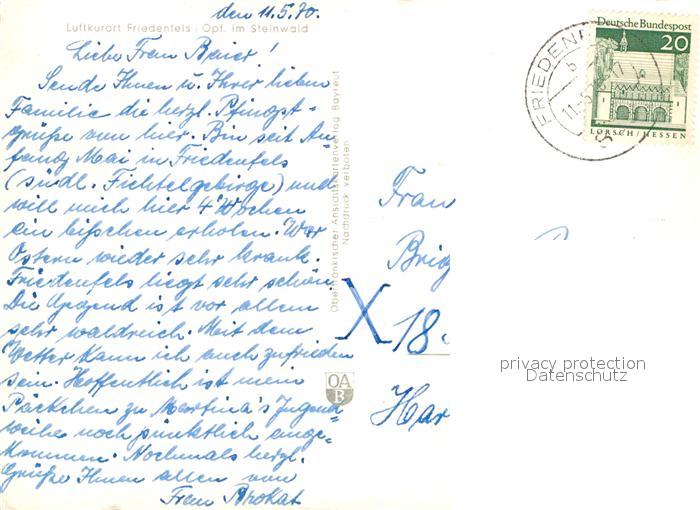 den 11.5.70.
Luftkurort Friedenfels · Opf. im Steinwald
Liebe Frau Beier!
Sende Ihnen u. Ihrer lieben
Familie die herzl. Pfingst-
grüße von hier. Bin seit An
fang Mai in Friedenfels
(südl. Fichtelgebirge) und
will mich hier 4 Wochen
ein bißchen erholen. War
Ostern wieder sehr krank.
Friedenfels liegt sehr schön
Die Gegend ist vor allem
sehr waldreich. Mit dem
Wetter kann ich auch zufrieden
sein. Hoffentlich ist mein
Päckchen zu Martina's Jugend-
weihe noch pünktlich ange-
kommen. Nochmals herzl.
Grüße Ihnen allen von
Frau Brokat
Oberfränkischer Ansichtskartenverlag Bayreuth
Nachdruck verboten
OA
B
Deutsche Bundespost
20
LORSCH/HESSEN
FRIEDENF
11-5
Frau
Brig
X 18
Har
privacy protection
Datenschutz